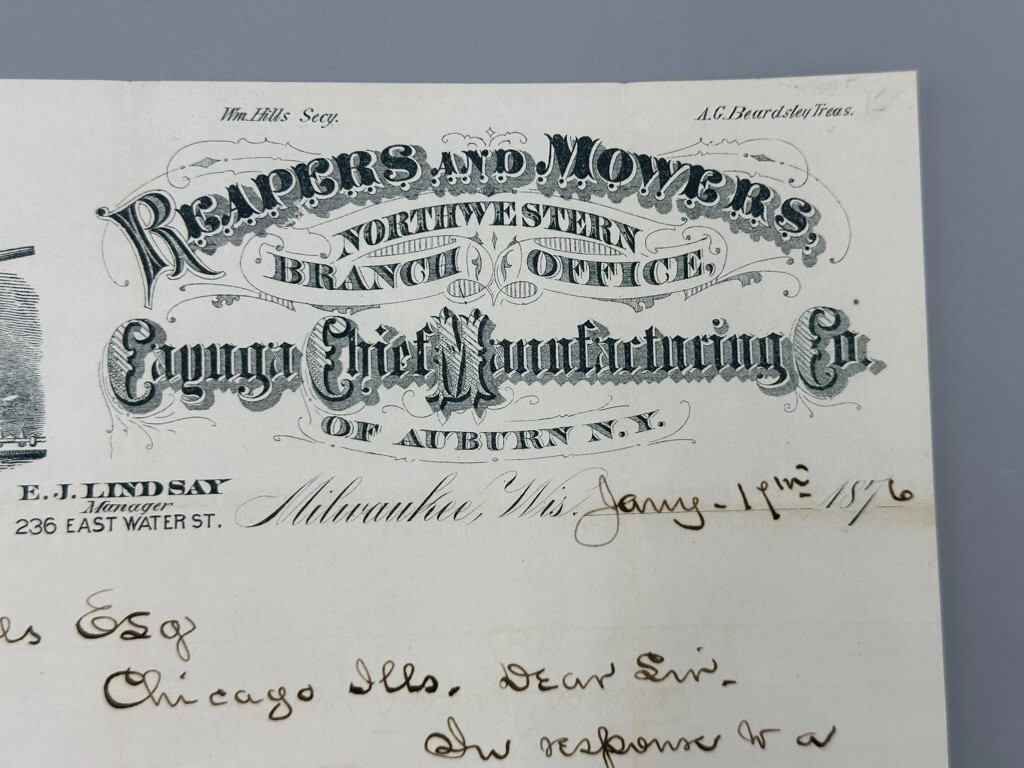 Wm. Hills Secy. A.G. Beardsley Treas.
REAPERS AND MOWERS,
NORTHWESTERN
BRANCH OFFICE,
Cayuga Chief Manufacturing Co.
OF AUBURN N.Y.
E. J. LINDSAY
Manager
236 EAST WATER ST.
Milwaukee, Wis. Jany - 17th 1876
Esq
Chicago Ills. Dear Sir.
In response to a